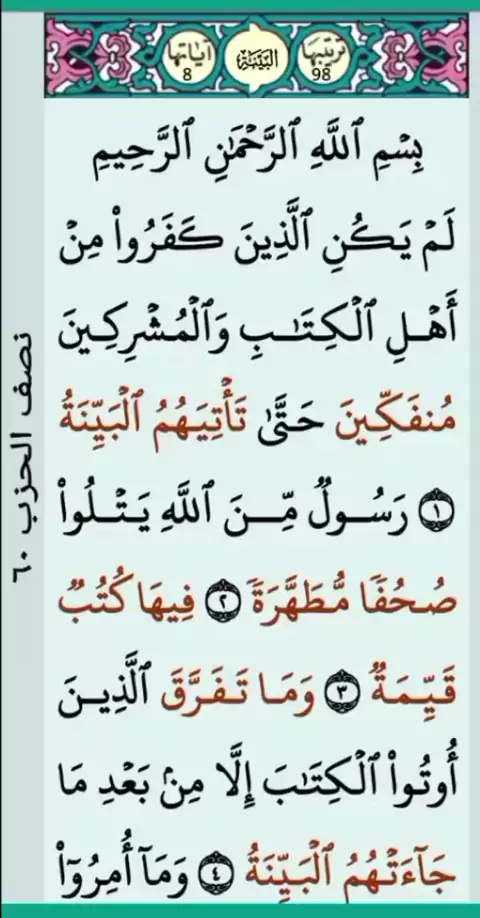 ترتيبها 98
البينة
آياتها 8
بِسْمِ ٱللَّهِ ٱلرَّحْمَٰنِ ٱلرَّحِيمِ
لَمْ يَكُنِ ٱلَّذِينَ كَفَرُوا۟ مِنْ
أَهْلِ ٱلْكِتَٰبِ وَٱلْمُشْرِكِينَ
مُنفَكِّينَ حَتَّىٰ تَأْتِيَهُمُ ٱلْبَيِّنَةُ
١ رَسُولٌ مِّنَ ٱللَّهِ يَتْلُوا۟
صُحُفًا مُّطَهَّرَةً ٢ فِيهَا كُتُبٌ
قَيِّمَةٌ ٣ وَمَا تَفَرَّقَ ٱلَّذِينَ
أُوتُوا۟ ٱلْكِتَٰبَ إِلَّا مِنۢ بَعْدِ مَا
جَآءَتْهُمُ ٱلْبَيِّنَةُ ٤ وَمَآ أُمِرُوٓا۟
نصف الحزب ٦٠